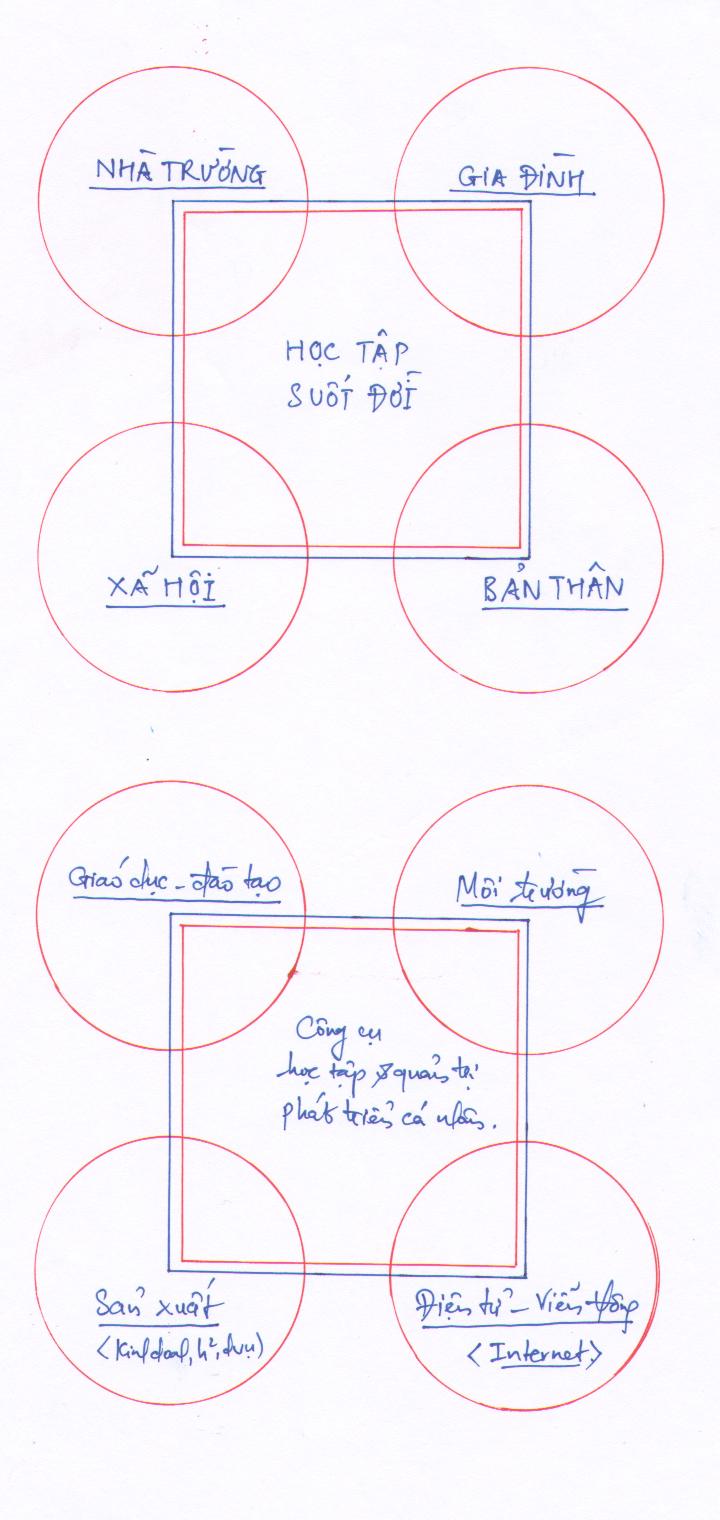 NHÀ TRƯỜNG
GIA ĐÌNH
HỌC TẬP
SUỐT ĐỜI
XÃ HỘI
BẢN THÂN
Giáo dục - đào tạo
Môi trường
Công cụ
học tập & quản trị
phát triển cá nhân.
Sản xuất
<Kinh doanh, h², dvụ>
Điện tử - Viễn thông
<Internet>